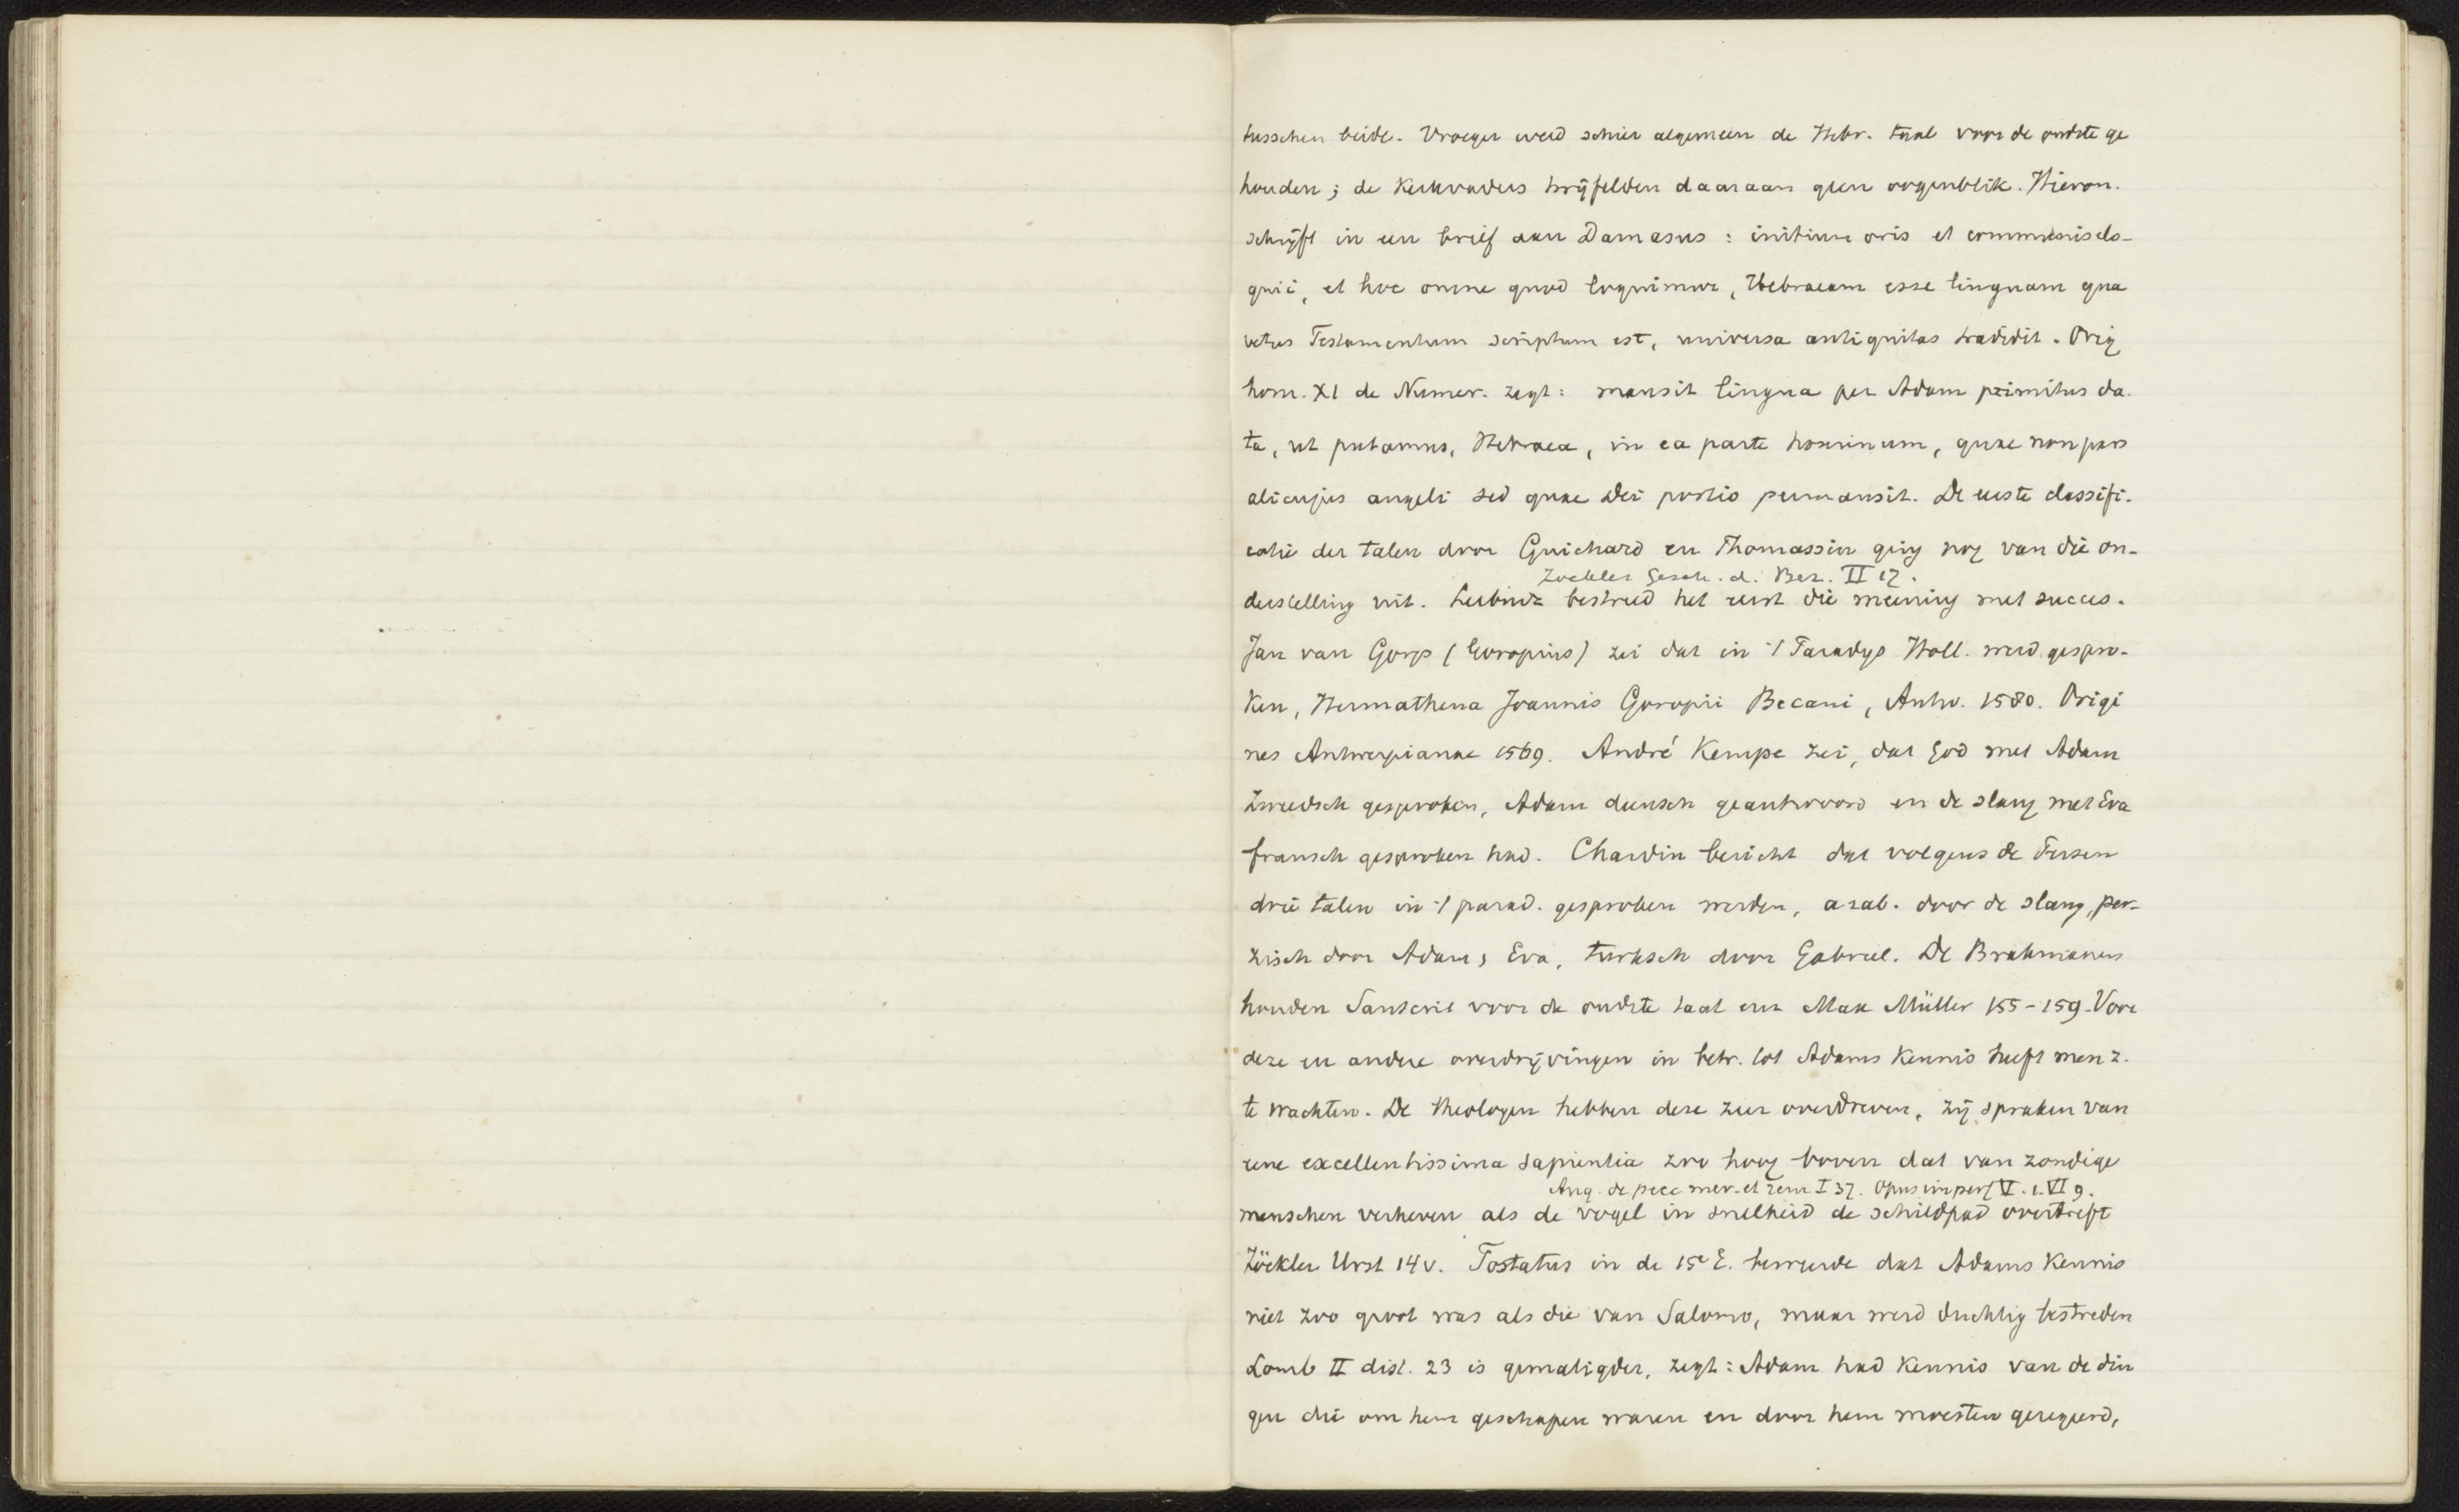 tusschen beide. Vroeger werd schier algemeen de Hebr. taal voor de oudste ge
houden; de Kerkvaders twijfelden daaraan geen oogenblik. Hieron.
schrijft in een brief aan Damasus: initium oris et communis elo-
quii, et hoc omne quod loquimur, Hebraeam esse linguam qua
vetus Testamentum scriptum est, universa antiquitas tradidit. Orig
hom. XI de Numer. zegt: mansit lingua per Adam primitus da.
ta, ut putamus, Hebraea, in ea parte hominum, quae non pars
alicujus angeli sed quae Dei portio permansit. De eerste classifi-
catie der talen door Guichard en Thomassin ging nog van die on-
Zöckler Gesch. d. Bez. II 17.
derstelling uit. Leibniz bestreed het eerst die meening met succes.
Jan van Gorp (Goropius) zei dat in 't Paradys Holl. werd gespro-
ken, Hermathena Joannis Goropii Becani, Antw. 1580. Origi
nes Antwerpianae 1569. André Kempe zei, dat God met Adam
Zweedsch gesproken, Adam deensch geantwoord en de slang met Eva
fransch gesproken had. Chardin bericht dat volgens de Perzen
drie talen in 't parad. gesproken werden, arab. door de slang, per-
zisch door Adam, Eva, turksch door Gabriel. De Brahmanen
houden Sanscrit voor de oudste taal enz Max Müller 155-159. Voor
deze en andere overdrijvingen in betr. tot Adams Kennis heeft men z.
te wachten. De theologen hebben deze zeer overdreven, zij spraken van
eene excellentissima sapientia zoo hoog boven dat van zondige
Aug. de pecc mer. et rem I 37. Opus imperf V. 1. VI 9.
menschen verheven als de vogel in snelheid de schildpad overtreft
Zöckler Urst 14 v. Tostatus in de 15e E. beweerde dat Adams Kennis
niet zoo groot was als die van Salomo, maar werd duchtig bestreden
Lomb II dist. 23 is gematigder, zegt: Adam had Kennis van de din
gen die om hem geschapen waren en door hem moesten geregeerd,